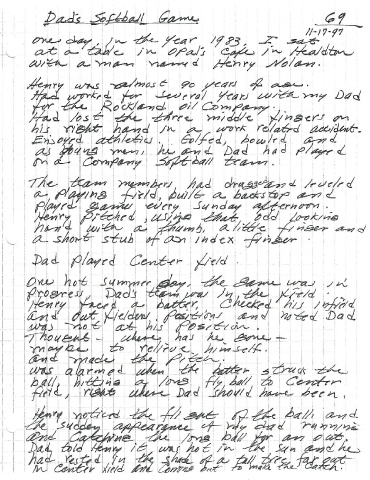 Dad's Softball Game 69
11-17-97
one day, in the year 1983, I sat
at a table in Opal's Cafe in Healdton
with a man named Henry Nolan.
Henry was almost 90 years of age.
Had worked for several years with my Dad
for the Rockland Oil Company.
Had lost the three middle fingers on
his right hand in a work related accident.
Enjoyed athletics - Golfed, bowled and
as young men, he and Dad had played
on a Company Softball team.
The team members, had dragged and leveled
a playing field, built a backstop and
played game every Sunday afternoon.
Henry pitched, using that, odd looking
hand with a thumb, a little finger and
a short stub of an index finger.
Dad Played Center field.
One hot summer day, the game was in
progress. Dad's team was in the field.
Henry faced a batter. Checked his infield
and out fielders, positions and noted Dad
was not at his position.
Thought - where has he gone -
maybe to relieve himself.
and made the pitch.
was alarmed when the batter struck the
ball, hitting a long fly ball to Center
field, right where Dad should have been.
Henry noticed the flight of the ball and
the sudden appearance of my dad running
and Catching the long ball for an out.
Dad told Henry it was hot in the sun and he
had rested in the shade of a tall tree far out
in Center field and Coming out to make the Catch.